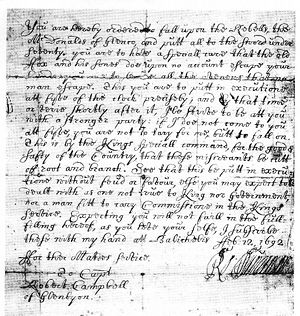 You are hereby ordered to fall upon the Rebells, the
McDonalds of Glenco, and putt all to the sword under
seventy. you are to have a speciall care that the old
ffox and his sones doe upon no account escape your
hands
man escape. This you are to putt in execution
att fyve of the clock precisely; and by that time,
or very shortly after it, I'le strive to be att you
with a stronger party: if I doe not come to you
att fyve, you are not to tary for me, butt to fall on.
This is by the Kings speciall command, for the good &
safty of the Country, that these miscreants be cutt
off root and branch. See that this be putt in execu
tione without feud or favour, else you may expect to be
dealt with as one not true to King nor government
nor a man fitt to cary Commissione in the Kings
service. Expecting you will not faill in the full-
filling hereof, as you love your selfe, I subscribe
these with my hand att Balicholis Feb: 12, 1692
For their Maties service
To Capt
Robert Campbell
of Glenlyon.